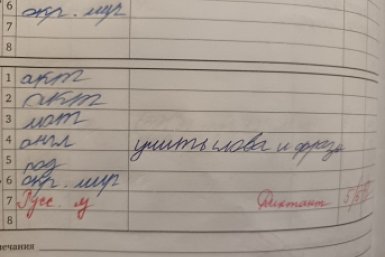 6 окр. мир
7
8
1 акт
2 акт
3 мат
4 англ учить слова и фразы
5 род
6 окр. мир
7 Русс. я Диктант 5/5
8
мечания